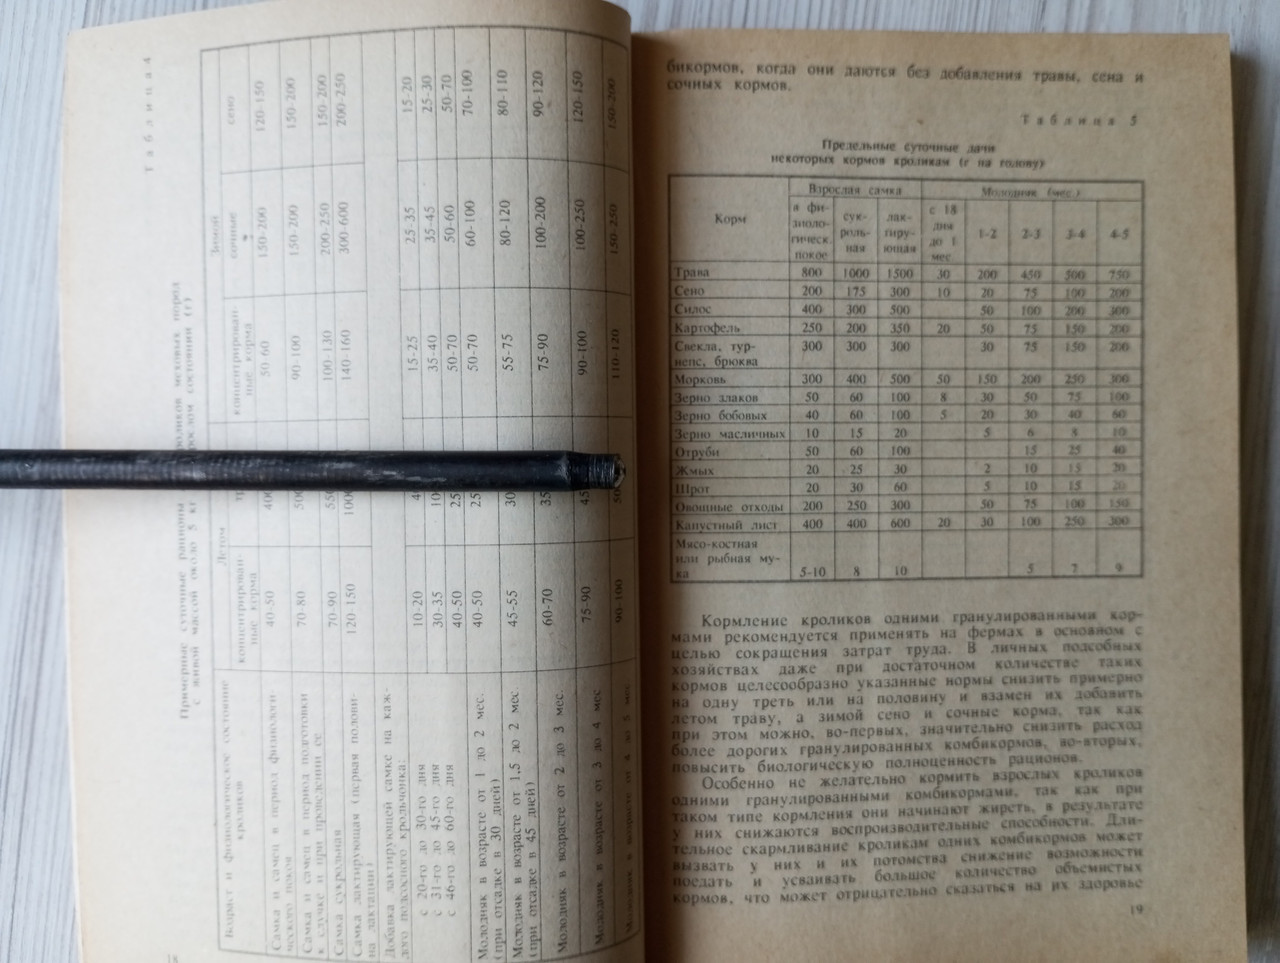 Таблица 4
Примерные суточные рационы
с живой массой около 5 кг
Возраст и физиологическое состояние кроликов
Летом
Зимой
концентрированные корма
концентрированные корма
сочные
сено
Самка и самец в период физиологического покоя 40-50 150-200 120-150
50-60
Самка и самец в период подготовки к случке и при проведении ее 70-80 90-100 150-200 150-200
Самка сукрольная 70-90 100-130 200-250 150-200
Самка лактирующая (первая половина лактации) 120-150 140-160 300-600 200-250
Добавка лактирующей самке на каждого подсосного крольчонка:
с 20-го до 30-го дня 10-20 15-25 25-35 15-20
с 31-го до 45-го дня 30-35 35-40 35-45 25-30
с 46-го до 60-го дня 40-50 50-70 50-60 50-70
Молодняк в возрасте от 1 до 2 мес. (при отсадке в 30 дней) 40-50 50-70 60-100 70-100
Молодняк в возрасте от 1,5 до 2 мес (при отсадке в 45 дней) 45-55 55-75 80-120 80-110
Молодняк в возрасте от 2 до 3 мес. 60-70 75-90 100-200 90-120
Молодняк в возрасте от 3 до 4 мес 75-90 90-100 100-250 120-150
Молодняк в возрасте от 4 до 5 мес 90-100 110-120 150-250 150-200
18
бикормов, когда они даются без добавления травы, сена и
сочных кормов.
Таблица 5
Предельные суточные дачи
некоторых кормов кроликам (г на голову)
Корм
Взрослая самка
Молодняк (мес.)
в физиологическ. покое
сукрольная
лактирующая
с 18 дня до 1 мес.
1-2
2-3
3-4
4-5
Трава 800 1000 1500 30 200 450 500 750
Сено 200 175 300 10 20 75 100 200
Силос 400 300 500 50 100 200 300
Картофель 250 200 350 20 50 75 150 200
Свекла, тур-
непс, брюква 300 300 300 30 75 150 200
Морковь 300 400 500 50 150 200 250 300
Зерно злаков 50 60 100 8 30 50 75 100
Зерно бобовых 40 60 100 5 20 30 40 60
Зерно масличных 10 15 20 5 6 8 10
Отруби 50 60 100 15 25 40
Жмых 20 25 30 2 10 15 20
Шрот 20 30 60 5 10 15 20
Овощные отходы 200 250 300 50 75 100 150
Капустный лист 400 400 600 20 30 100 250 300
Мясо-костная
или рыбная му-
ка 5-10 8 10 5 7 9
Кормление кроликов одними гранулированными кор-
мами рекомендуется применять на фермах в основном с
целью сокращения затрат труда. В личных подсобных
хозяйствах даже при достаточном количестве таких
кормов целесообразно указанные нормы снизить примерно
на одну треть или на половину и взамен их добавить
летом траву, а зимой сено и сочные корма, так как
при этом можно, во-первых, значительно снизить расход
более дорогих гранулированных комбикормов, во-вторых,
повысить биологическую полноценность рационов.
Особенно не желательно кормить взрослых кроликов
одними гранулированными комбикормами, так как при
таком типе кормления они начинают жиреть, в результате
у них снижаются воспроизводительные способности. Дли-
тельное скармливание кроликам одних комбикормов может
вызвать у них и их потомства снижение возможности
поедать и усваивать большое количество объемистых
кормов, что может отрицательно сказаться на их здоровье
19